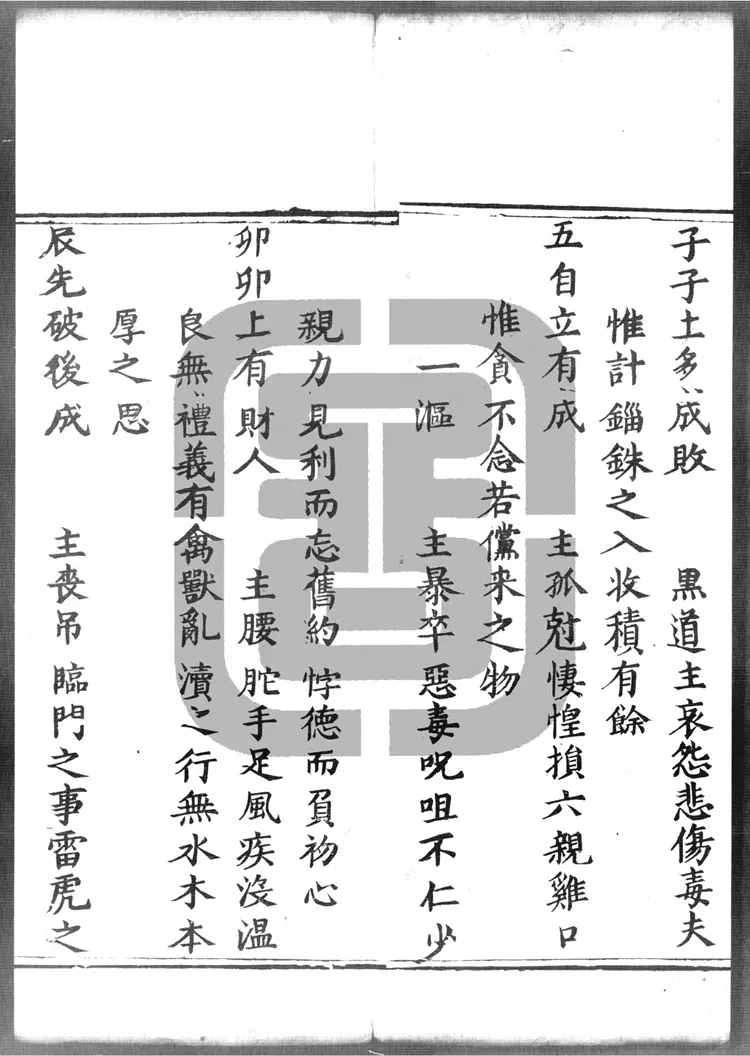 子子土多成敗 黒道主哀怨悲傷毒夫
惟計錙銖之入收積有餘
五自立有成 主孤尅悽惶損六親雞口
惟貪不念若儻来之物
一漚 主暴卒惡毒呪咀不仁少
親力見利而忘舊約悖德而負初心
卯卯上有財人 主腰胣手足風疾沒温
良無禮義有禽獸亂瀆之行無水木本
厚之思
辰先破後成 主喪吊臨門之事雷虎之